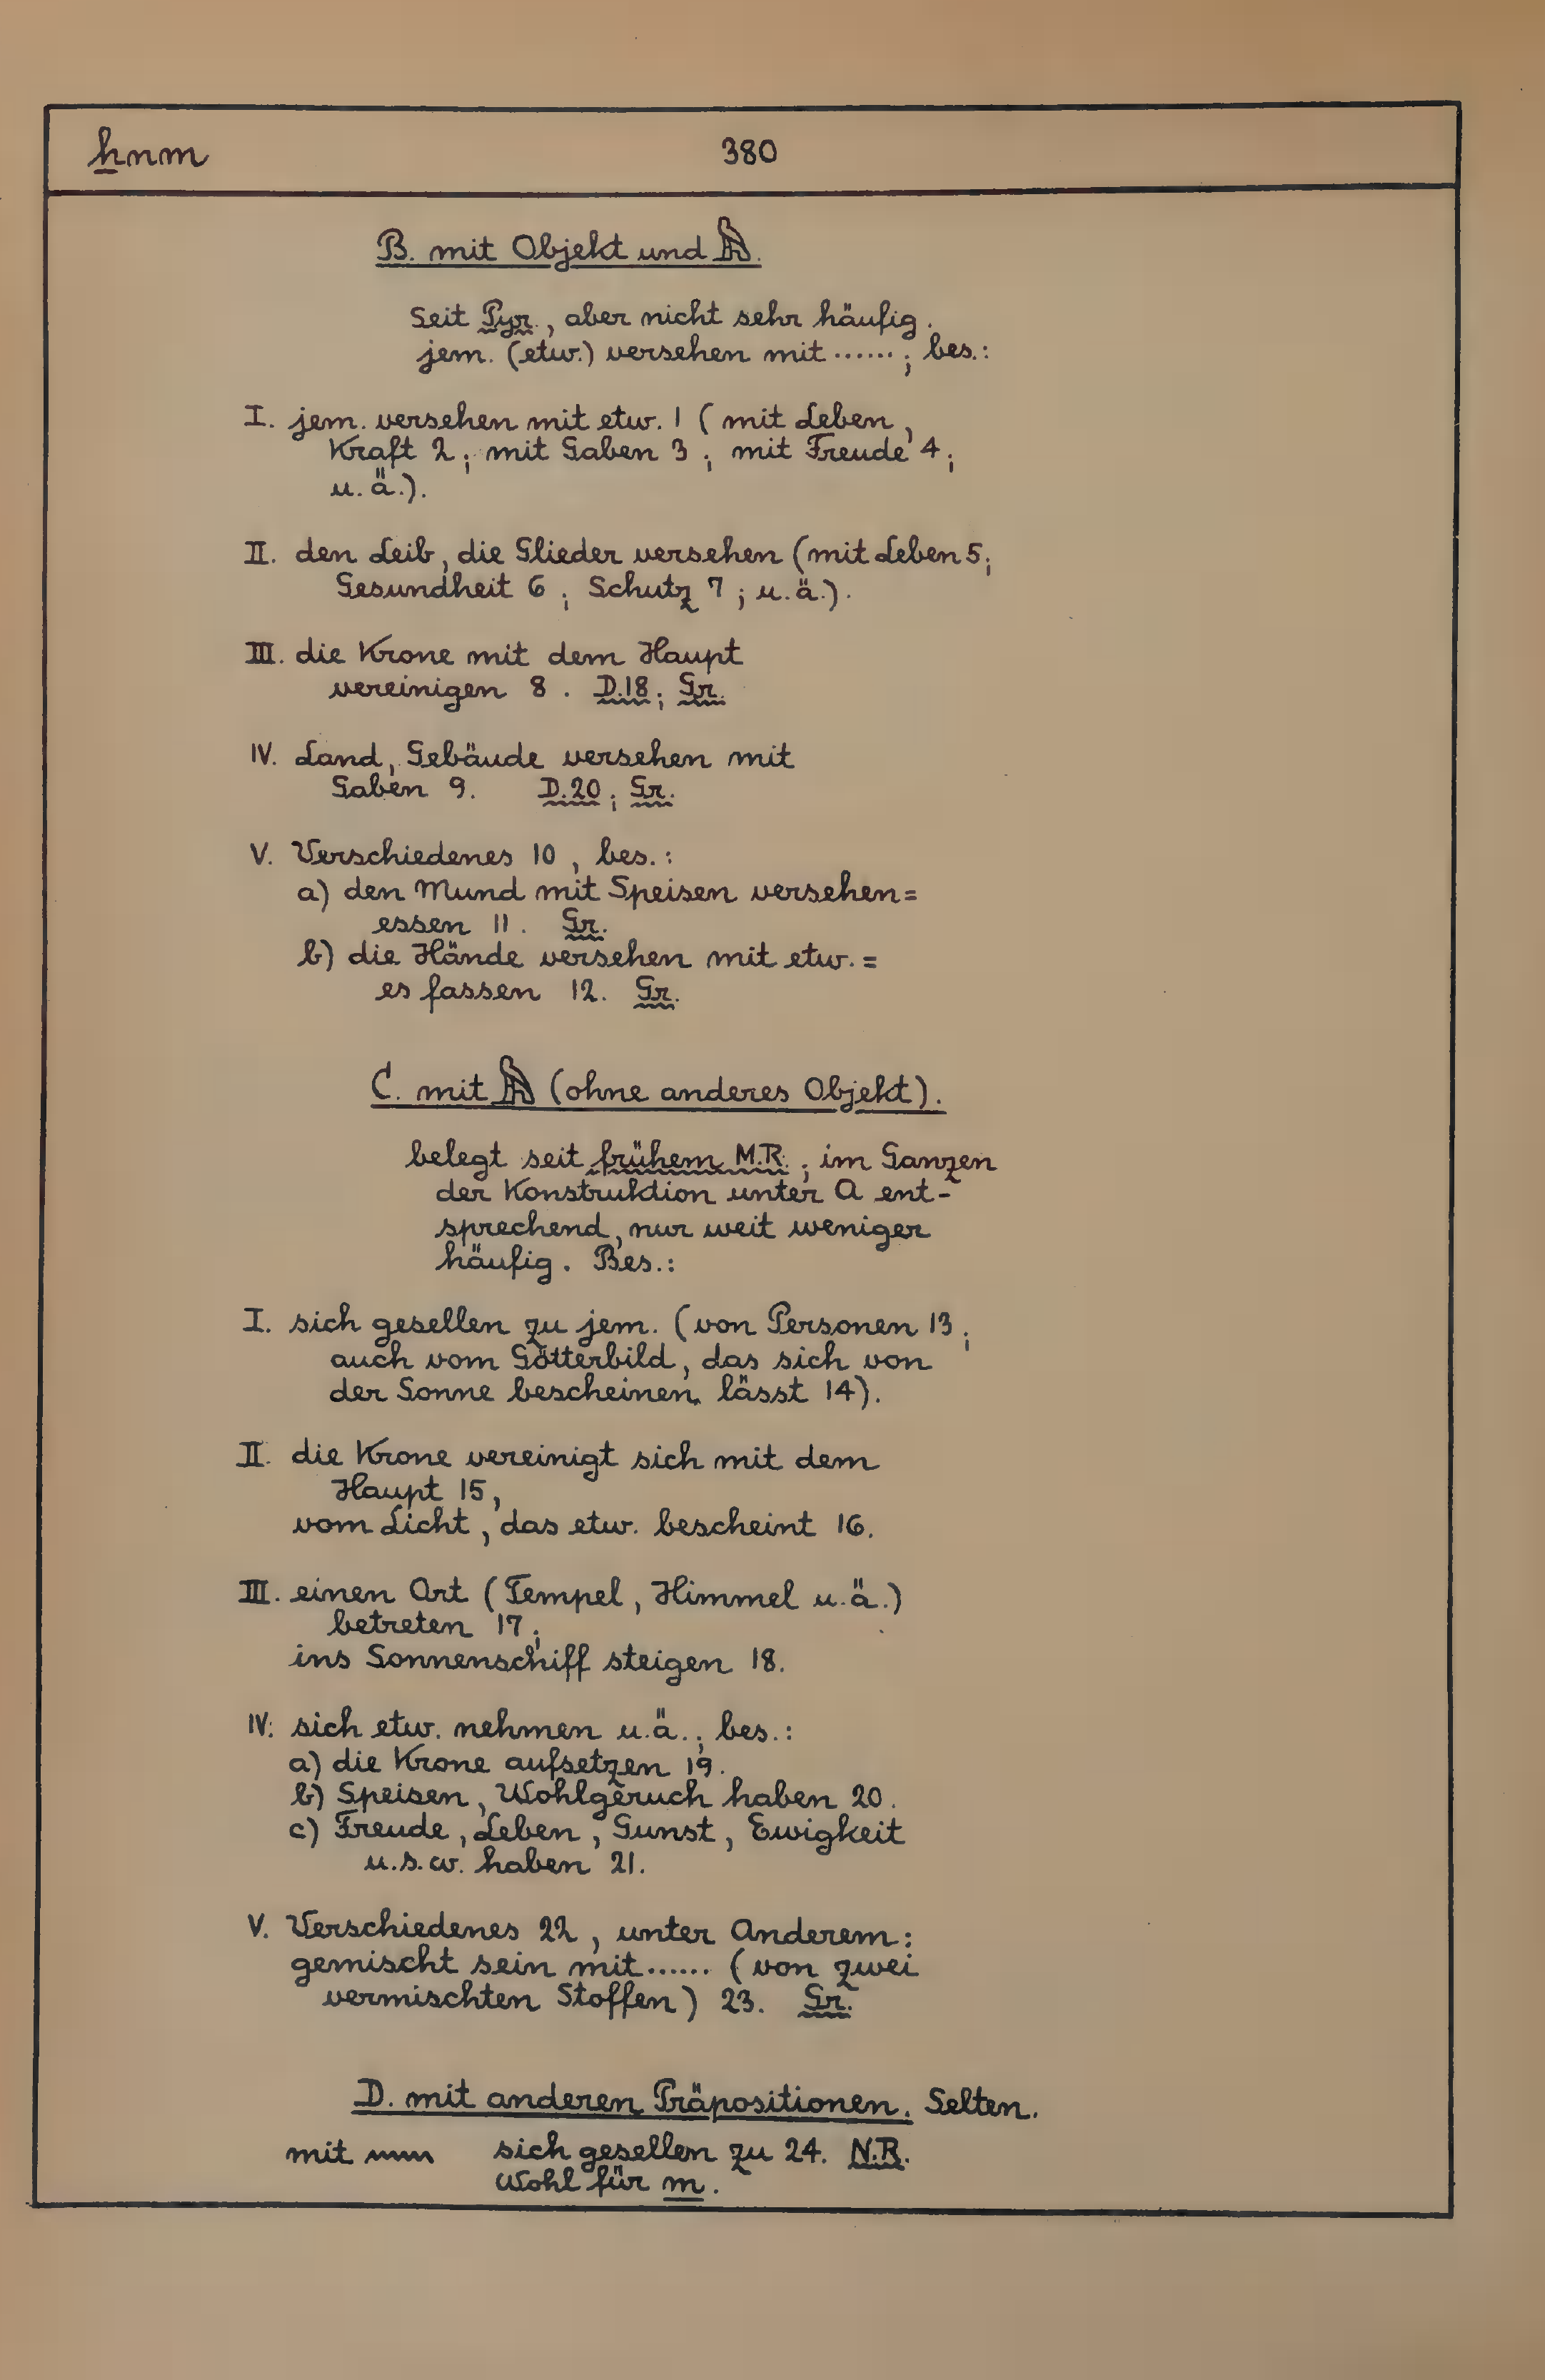 ẖnm 380
B. mit Objekt und 𓅓.
Seit Pyr., aber nicht sehr häufig.
jem. (etw.) versehen mit ......; bes.:
I. jem. versehen mit etw. 1 (mit Leben,
Kraft 2; mit Gaben 3; mit Freude 4;
u. ä.).
II. den Leib, die Glieder versehen (mit Leben 5;
Gesundheit 6; Schutz 7; u. ä.).
III. die Krone mit dem Haupt
vereinigen 8. D.18; Gr.
IV. Land, Gebäude versehen mit
Gaben 9. D.20; Gr.
V. Verschiedenes 10, bes.:
a) den Mund mit Speisen versehen =
essen 11. Gr.
b) die Hände versehen mit etw. =
es fassen 12. Gr.
C. mit 𓅓 (ohne anderes Objekt).
belegt seit frühem M.R.; im Ganzen
der Konstruktion unter A ent-
sprechend, nur weit weniger
häufig. Bes.:
I. sich gesellen zu jem. (von Personen 13;
auch vom Götterbild, das sich von
der Sonne bescheinen lässt 14).
II. die Krone vereinigt sich mit dem
Haupt 15,
vom Licht, das etw. bescheint 16.
III. einen Ort (Tempel, Himmel u. ä.)
betreten 17;
ins Sonnenschiff steigen 18.
IV. sich etw. nehmen u. ä.; bes.:
a) die Krone aufsetzen 19.
b) Speisen, Wohlgeruch haben 20.
c) Freude, Leben, Gunst, Ewigkeit
u. s. w. haben 21.
V. Verschiedenes 22, unter Anderem:
gemischt sein mit ...... (von zwei
vermischten Stoffen) 23. Gr.
D. mit anderen Präpositionen. Selten.
mit 𓈖 sich gesellen zu 24. N.R.
Wohl für m.